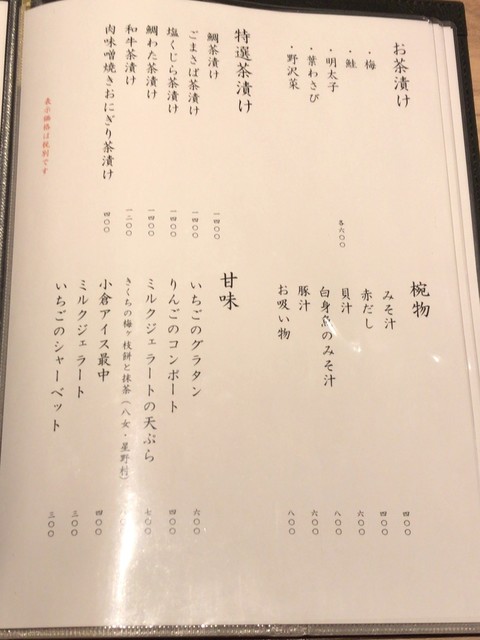 お茶漬け
・梅
・鮭
・明太子
・葉わさび
・野沢菜
各六〇〇
特選茶漬け
鯛茶漬け 一四〇〇
ごまさば茶漬け 一四〇〇
塩くじら茶漬け 一四〇〇
鯛わた茶漬け 一四〇〇
和牛茶漬け 一二〇〇
肉味噌焼きおにぎり茶漬け 四〇〇
表示価格は税別です
椀物
みそ汁 四〇〇
赤だし 四〇〇
貝汁 六〇〇
白身魚のみそ汁 八〇〇
豚汁 六〇〇
お吸い物 八〇〇
甘味
いちごのグラタン 六〇〇
りんごのコンポート 四〇〇
ミルクジェラートの天ぷら 七〇〇
きくちの梅ヶ枝餅と抹茶（八女・星野村）
小倉アイス最中 四〇〇
ミルクジェラート 三〇〇
いちごのシャーベット 三〇〇